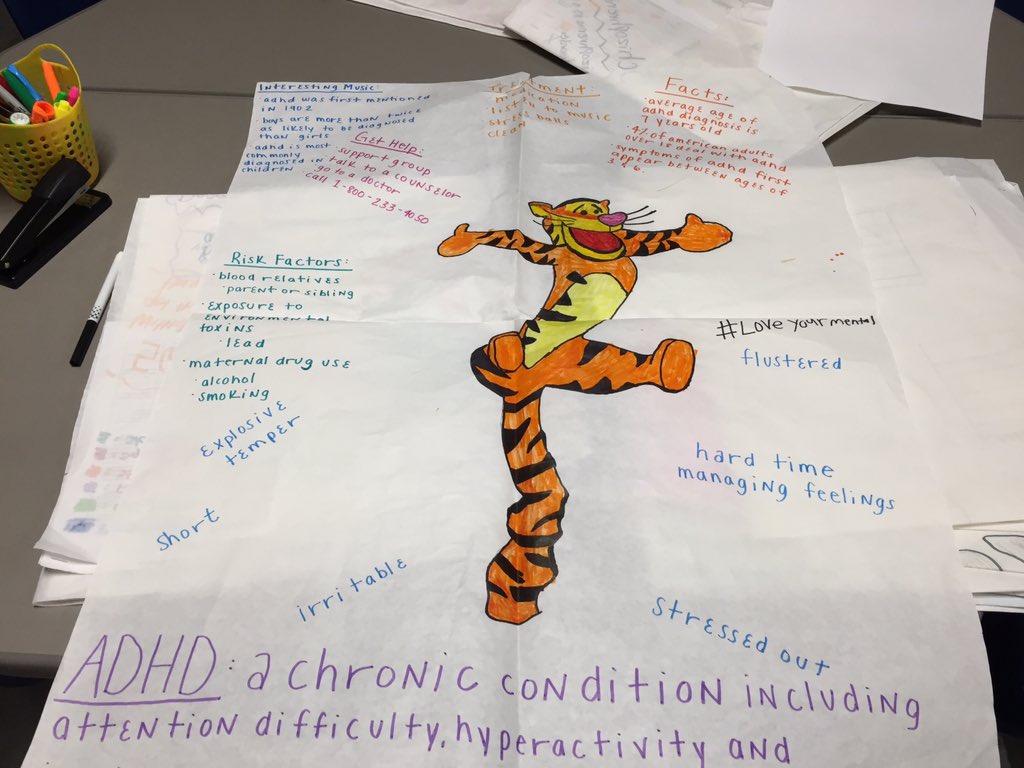 Interesting Music:
·adhd was first mentioned
in 1902
·boys are more than twice
as likely to be diagnosed
than girls
·adhd is most
commonly
diagnosed in
children
Get Help:
·support group
·talk to a counselor
·go to a doctor
·call 1-800-233-4050
Treatment:
medication
listen to music
stress balls
clean
Facts:
·average age of
adhd diagnosis is
7 years old
·4% of american adults
over 18 deal with adhd
symptoms of adhd first
appear between ages of
3 & 6.
Risk Factors:
·blood relatives
·parent or sibling
·exposure to
environmental
toxins
·lead
·maternal drug use
·alcohol
·smoking
#Loveyourmental
flustered
explosive
temper
hard time
managing feelings
short
irritable
stressed out
ADHD: a chronic condition including
attention difficulty, hyperactivity and